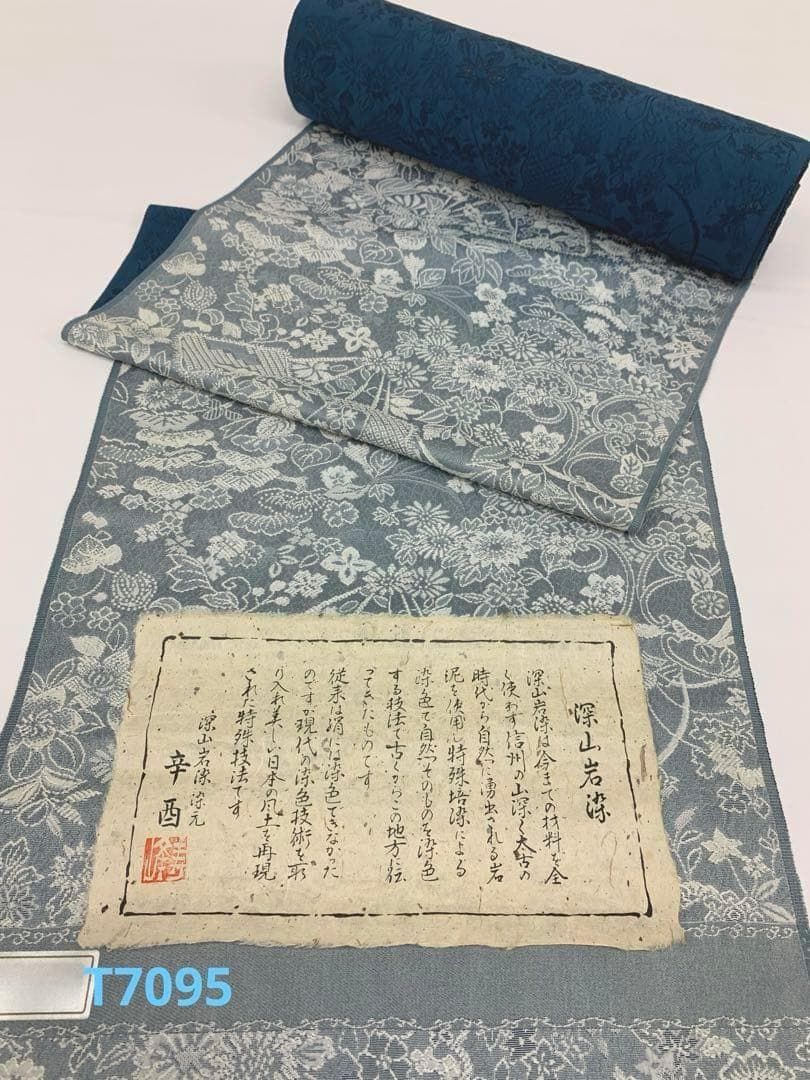 深山岩染
深山岩染は今までの材料を全
く使わず信州の山深く太古の
時代から自然に湧出される岩
泥を使用し特殊培染による
染色で自然そのものを染色
する技法で古くからこの地方に伝
ってきたものです
従来は絹には染色できなかった
のですが現代の染色技術を取
り入れ美しい日本の風土を再現
された特殊技法です
深山岩染 染元
辛酉
T7095